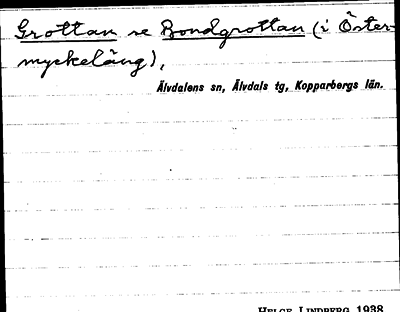 Grottan se Bondgrottan (i Öster-
myckeläng),
Älvdalens sn, Älvdals tg, Kopparbergs län.
HELGE LINDBERG 1938